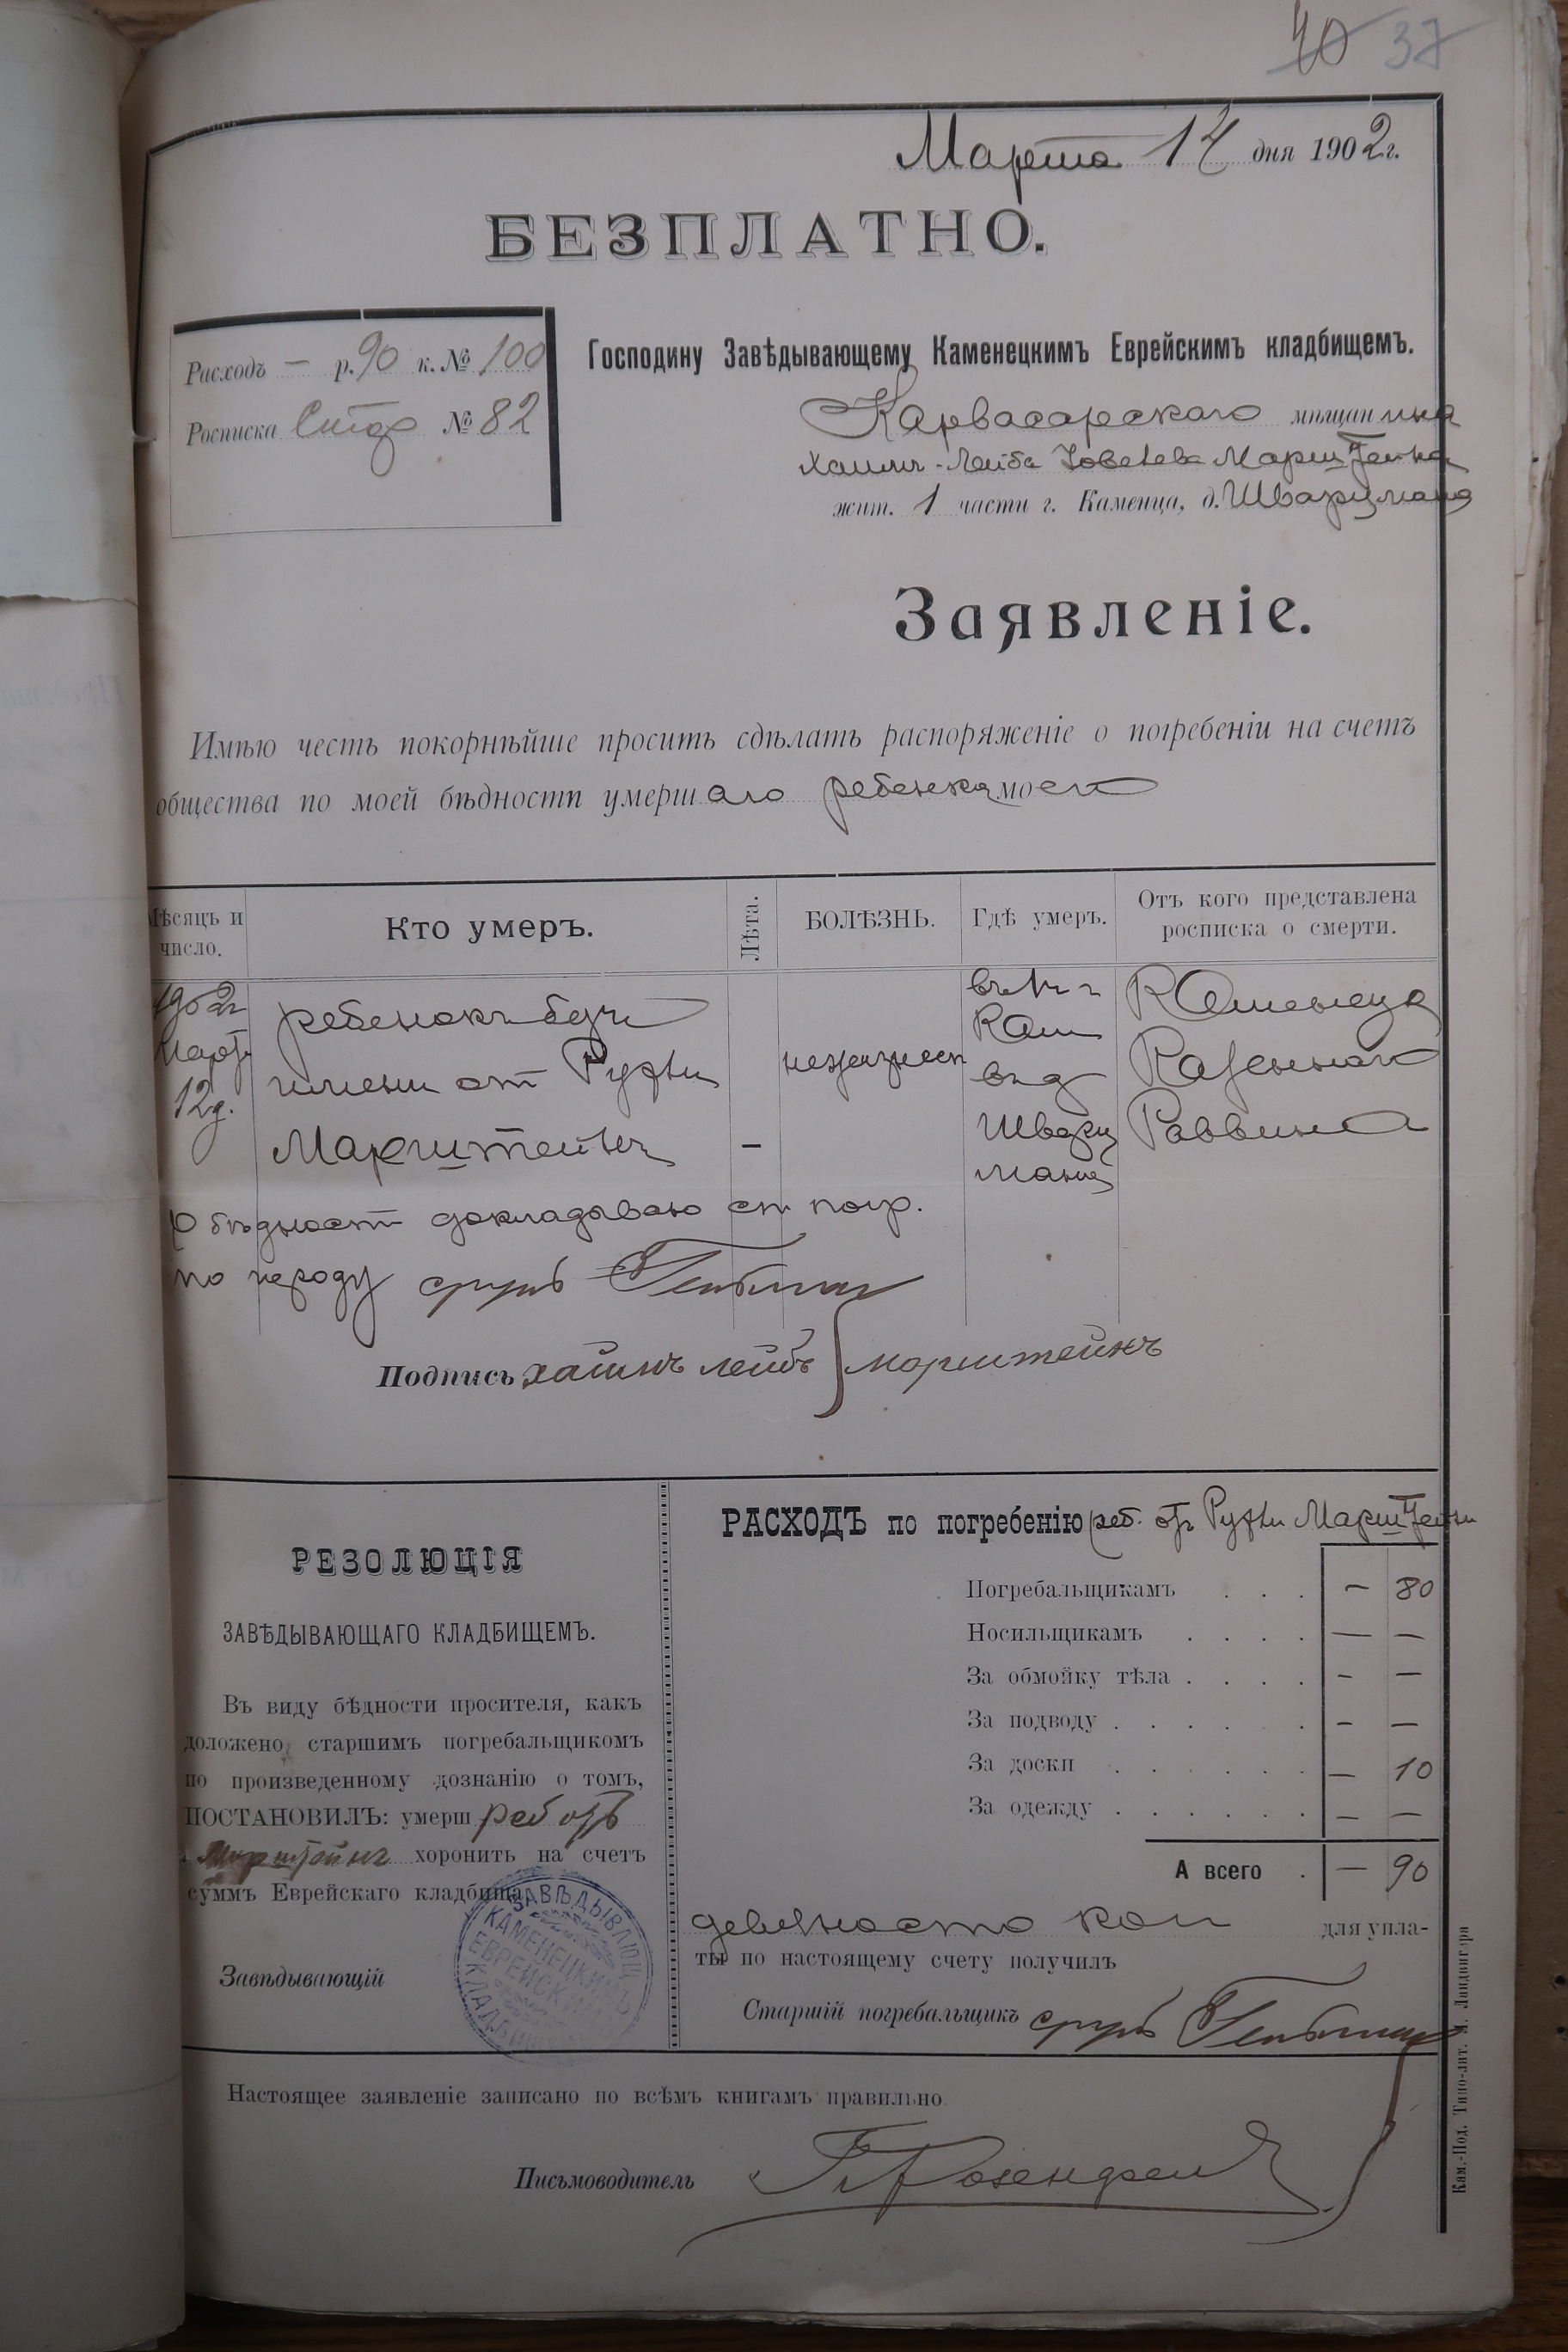 40 37
Марта 14 дня 1902 г.
БЕЗПЛАТНО.
Расходъ — р. 90 к. № 100
Росписка Стар № 82
Господину Завѣдывающему Каменецкимъ Еврейскимъ кладбищемъ.
Карвасарскаго мѣщанина
Хаимъ-Лейба Марштейна
жит. 1 части г. Каменца, д. Шварцмана
Заявленіе.
Имѣю честь покорнѣйше просить сдѣлать распоряженіе о погребеніи на счетъ
общества по моей бѣдности умершаго ребенка моего
Мѣсяцъ и число.
Кто умеръ.
Лѣта.
БОЛѢЗНЬ.
Гдѣ умеръ.
Отъ кого представлена росписка о смерти.
1902 г Март 12 д.
ребенокъ безъ
имени от Рухли
Марштейнъ
—
въ 1 ч г Кам въ д Шварцмана
Каменецка Казеннаго Раввина
О бѣдност докладываю ст погр.
по народу
Подпись хаимъ лейбъ марштейнъ
РЕЗОЛЮЦІЯ
ЗАВѢДЫВАЮЩАГО КЛАДБИЩЕМЪ.
Въ виду бѣдности просителя, какъ
доложено старшимъ погребальщикомъ
по произведенному дознанію о томъ,
ПОСТАНОВИЛЪ: умерш реб отъ
Марштейнъ хоронить на счетъ
суммъ Еврейскаго кладбища.
Завѣдывающій
ЗАВѢДЫВАЮЩ КАМЕНЕЦКИМЪ ЕВРЕЙСКИМЪ КЛАДБИЩ
РАСХОДЪ по погребенію реб. отъ Рухли Марштейнъ
Погребальщикамъ . . . — 80
Носильщикамъ . . . . — —
За обмойку тѣла . . . . — —
За подводу . . . . . . — —
За доски . . . . . . — 10
За одежду . . . . . . — —
А всего . — 90
девяносто коп для упла-
ты по настоящему счету получилъ
Старшій погребальщикъ
Настоящее заявленіе записано по всѣмъ книгамъ правильно.
Письмоводитель Розенфельд
Кам.-Под. Типо-лит. М. Ландвигера